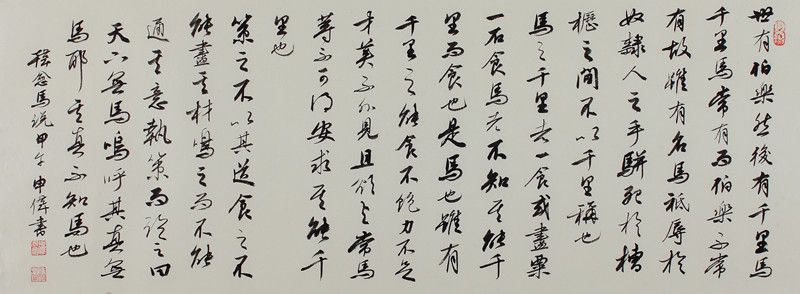 世有伯樂然後有千里馬
千里馬常有而伯樂不常
有故雖有名馬祇辱於
奴隸人之手駢死於槽
櫪之間不以千里稱也
馬之千里者一食或盡粟
一石食馬者不知其能千
里而食也是馬也雖有
千里之能食不飽力不足
才美不外見且欲與常馬
等不可得安求其能千
里也
策之不以其道食之不
能盡其材鳴之而不能
通其意執策而臨之曰
天下無馬嗚呼其真無
馬耶其真不知馬也
韓愈馬說甲午申偉書